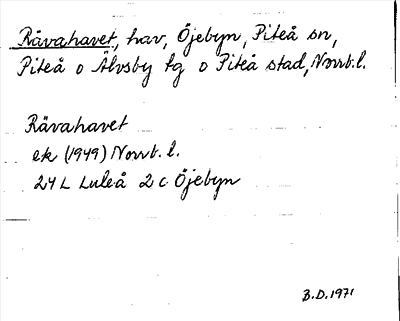 Rävahavet, hav, Öjebyn, Piteå sn,
Piteå o Älvsby tg o Piteå stad, Norrb.l.
Rävahavet
ek (1949) Norrb. l.
24 L Luleå 2 c Öjebyn
B.D.1971